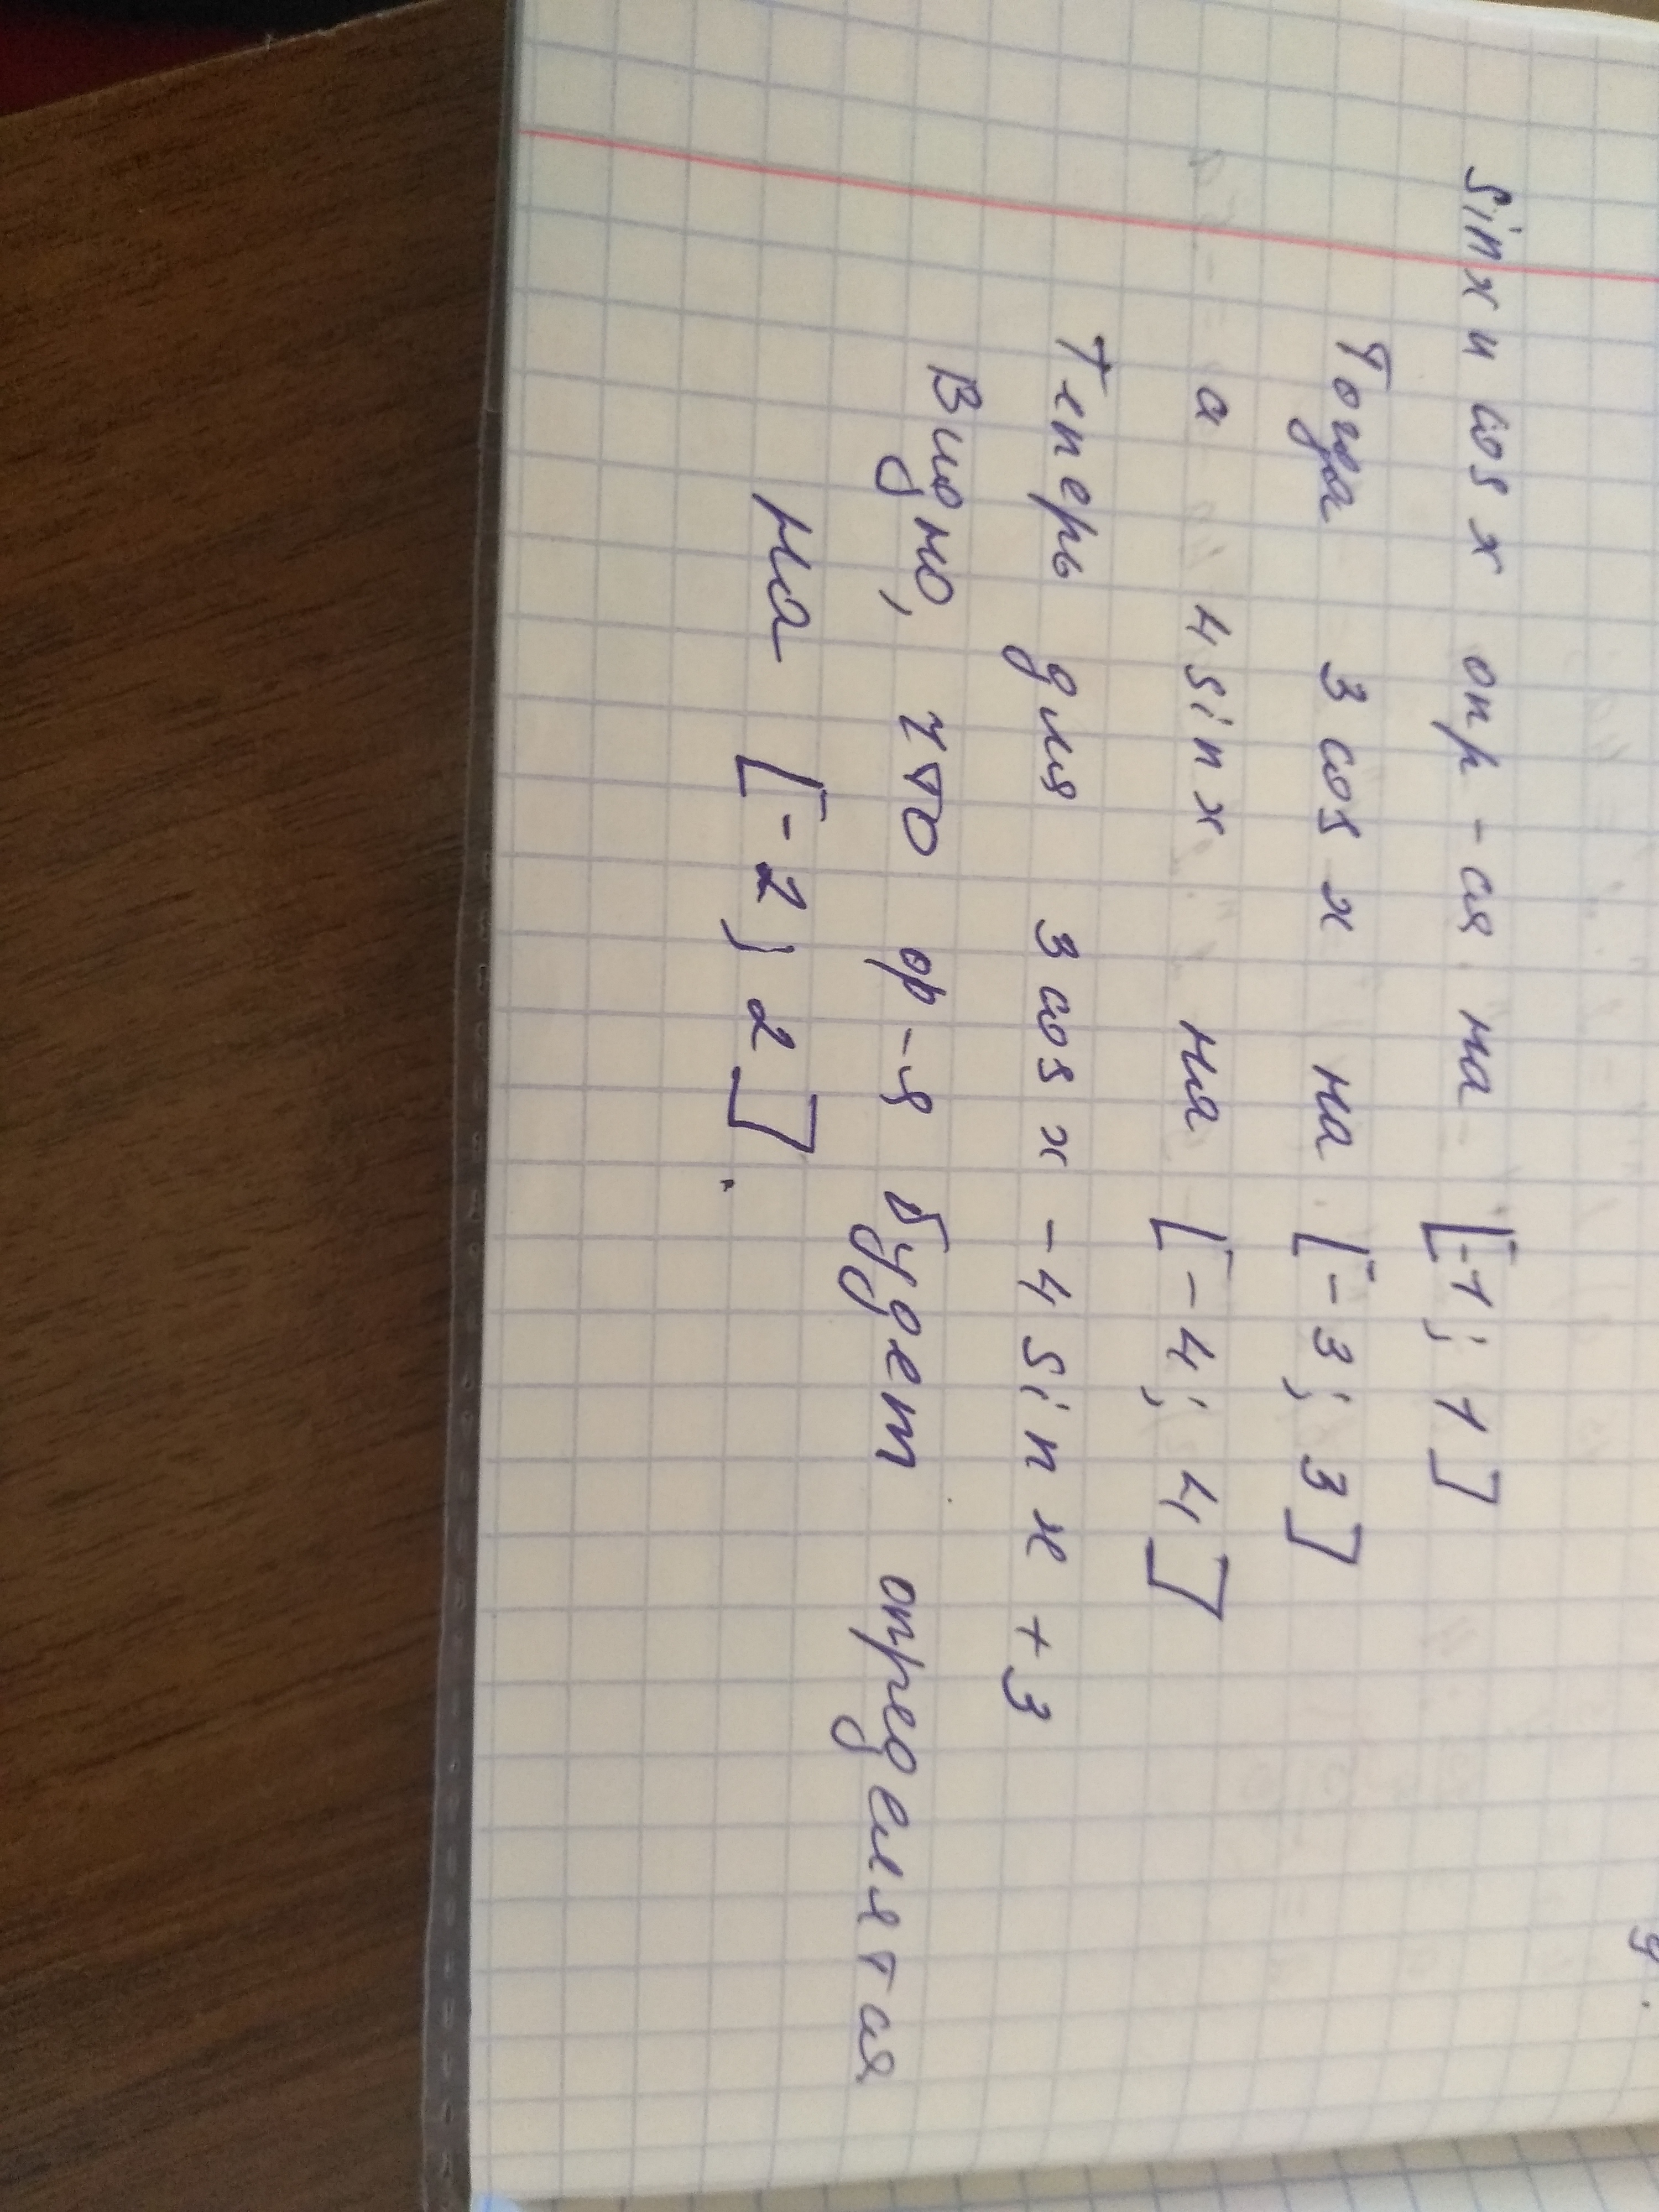 sin x и cos x опр-ся на [-1; 1]
Тогда 3 cos x на [-3; 3]
а 4 sin x на [-4; 4]
Теперь для 3 cos x - 4 sin x + 3
Видно, что ф-я будет определятся
на [-2; 2].